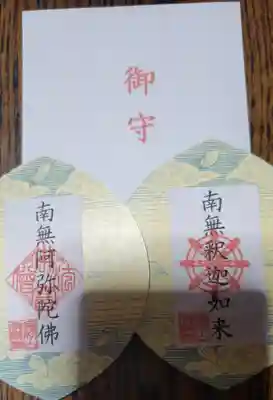 御守
南無釈迦如来
南無阿弥陀佛